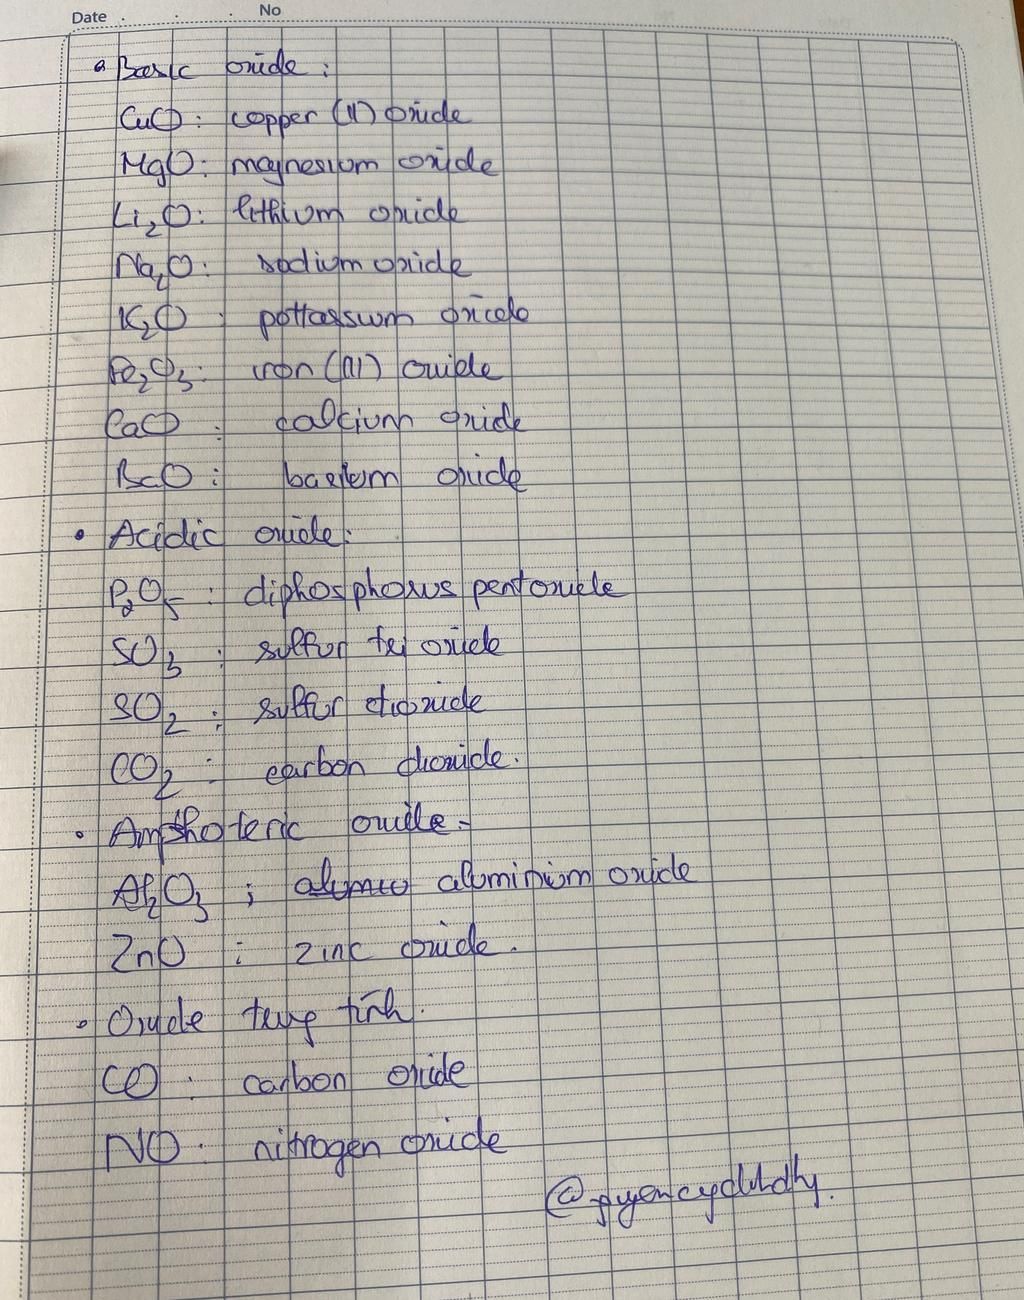 Date . . . No
• Basic oxide :
CuO : copper (II) oxide
MgO : magnesium oxide
Li₂O : lithium oxide
Na₂O : sodium oxide
K₂O : pottassium oxide
Fe₂O₃ : iron (III) oxide
CaO : calcium oxide
BaO : barium oxide
• Acidic oxide :
P₂O₅ : diphosphorus pentoxide
SO₃ : sulfur trioxide
SO₂ : sulfur dioxide
CO₂ : carbon dioxide.
• Amphoteric oxide -
Al₂O₃ ; aluminium oxide
ZnO : zinc oxide .
• Oxide trung tính.
CO : carbon oxide
NO : nitrogen oxide